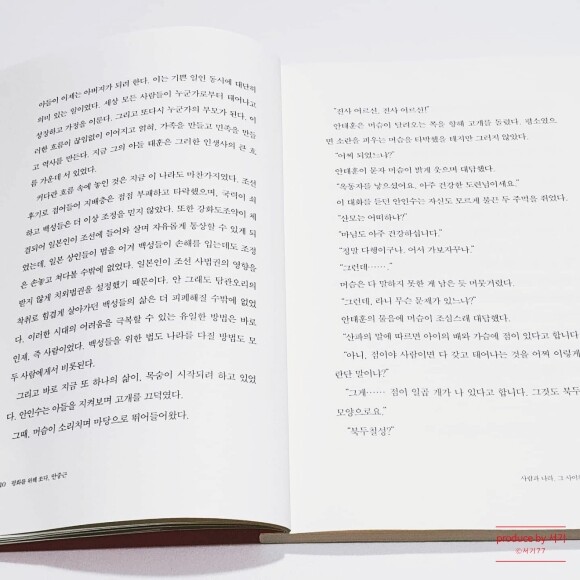 아들이 이제는 아버지가 되려 한다. 이는 기쁜 일인 동시에 대단히
의미 있는 일이었다. 세상 모든 사람들이 누군가로부터 태어나고
성장하고 가정을 이룬다. 그리고 또다시 누군가의 부모가 된다. 이
러한 흐름이 끊임없이 이어지고 얽혀, 가족을 만들고 민족을 만들
고 역사를 만든다. 지금 그의 아들 태훈은 그러한 인생사의 큰 흐
름 가운데 서 있었다.
커다란 흐름 속에 놓인 것은 지금 이 나라도 마찬가지였다. 조선
후기로 접어들어 지배층은 점점 부패하고 타락했으며, 국력이 쇠
하고 백성들은 더 이상 조정을 믿지 않았다. 또한 강화도조약이 체
결되어 일본인이 조선에 들어와 살며 자유롭게 통상할 수 있게 되
었는데, 일본 상인들이 법을 어겨 백성들이 손해를 입는데도 조정
은 손놓고 쳐다볼 수밖에 없었다. 일본인이 조선 사법권의 영향을
받지 않게 치외법권을 설정했기 때문이다. 안 그래도 탐관오리의
착취로 힘겹게 살아가던 백성들의 삶은 더 피폐해질 수밖에 없었
다. 이러한 시대의 어려움을 극복할 수 있는 유일한 방법은 바로
인재, 즉 사람이었다. 백성들을 위한 법도 나라를 다질 방법도 모
두 사람에게서 비롯된다.
그리고 바로 지금 또 하나의 삶이, 목숨이 시작되려 하고 있었
다. 안인수는 아들을 지켜보며 고개를 끄덕였다.
그때, 머슴이 소리치며 마당으로 뛰어들어왔다.
평화를 위해 쏘다, 안중근
"진사 어르신, 진사 어르신!"
안태훈은 머슴이 달려오는 쪽을 향해 고개를 돌렸다. 평소였으
면 소란을 피우는 머슴을 타박했을 테지만 그러지 않았다.
"어찌 되었느냐?"
안태훈이 묻자 머슴이 밝게 웃으며 대답했다.
"옥동자를 낳으셨어요. 아주 건강한 도련님이세요."
이 대화를 듣던 안인수는 자신도 모르게 불끈 두 주먹을 쥐었다.
"산모는 어떠하냐?"
"마님도 아주 건강하십니다."
"정말 다행이구나. 어서 가보자꾸나."
"그런데……."
머슴은 다 말하지 못한 게 남은 듯 머뭇거렸다.
"그런데, 라니 무슨 문제가 있느냐?"
안태훈의 물음에 머슴이 조심스레 대답했다.
"산파의 말에 따르면 아이의 배와 가슴에 점이 있다고 합니다
"아니, 점이야 사람이면 다 갖고 태어나는 것을 어찌 이렇게
란단 말이냐?"
"그게…… 점이 일곱 개가 나 있다고 합니다. 그것도 북두
모양으로요."
"북두칠성?"
사람과 나라, 그 사이
produce by 서기
©서기77